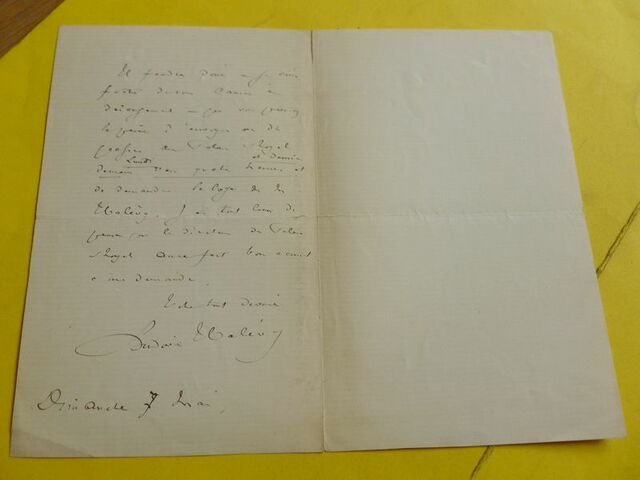 Il faudra donc que je vous
de
dérangement que vous preniez
la peine d'envoyer ou de
passer au Palais Royal
Lundi et demie
demain quatre heures et
de demander la loge de Mr
Halévy. J'ai tout lieu de
penser que le directeur du Palais
Royal aura fait bon accueil
à ma demande.
Votre tout dévoué
Ludovic Halévy
Dimanche 7 Mai.